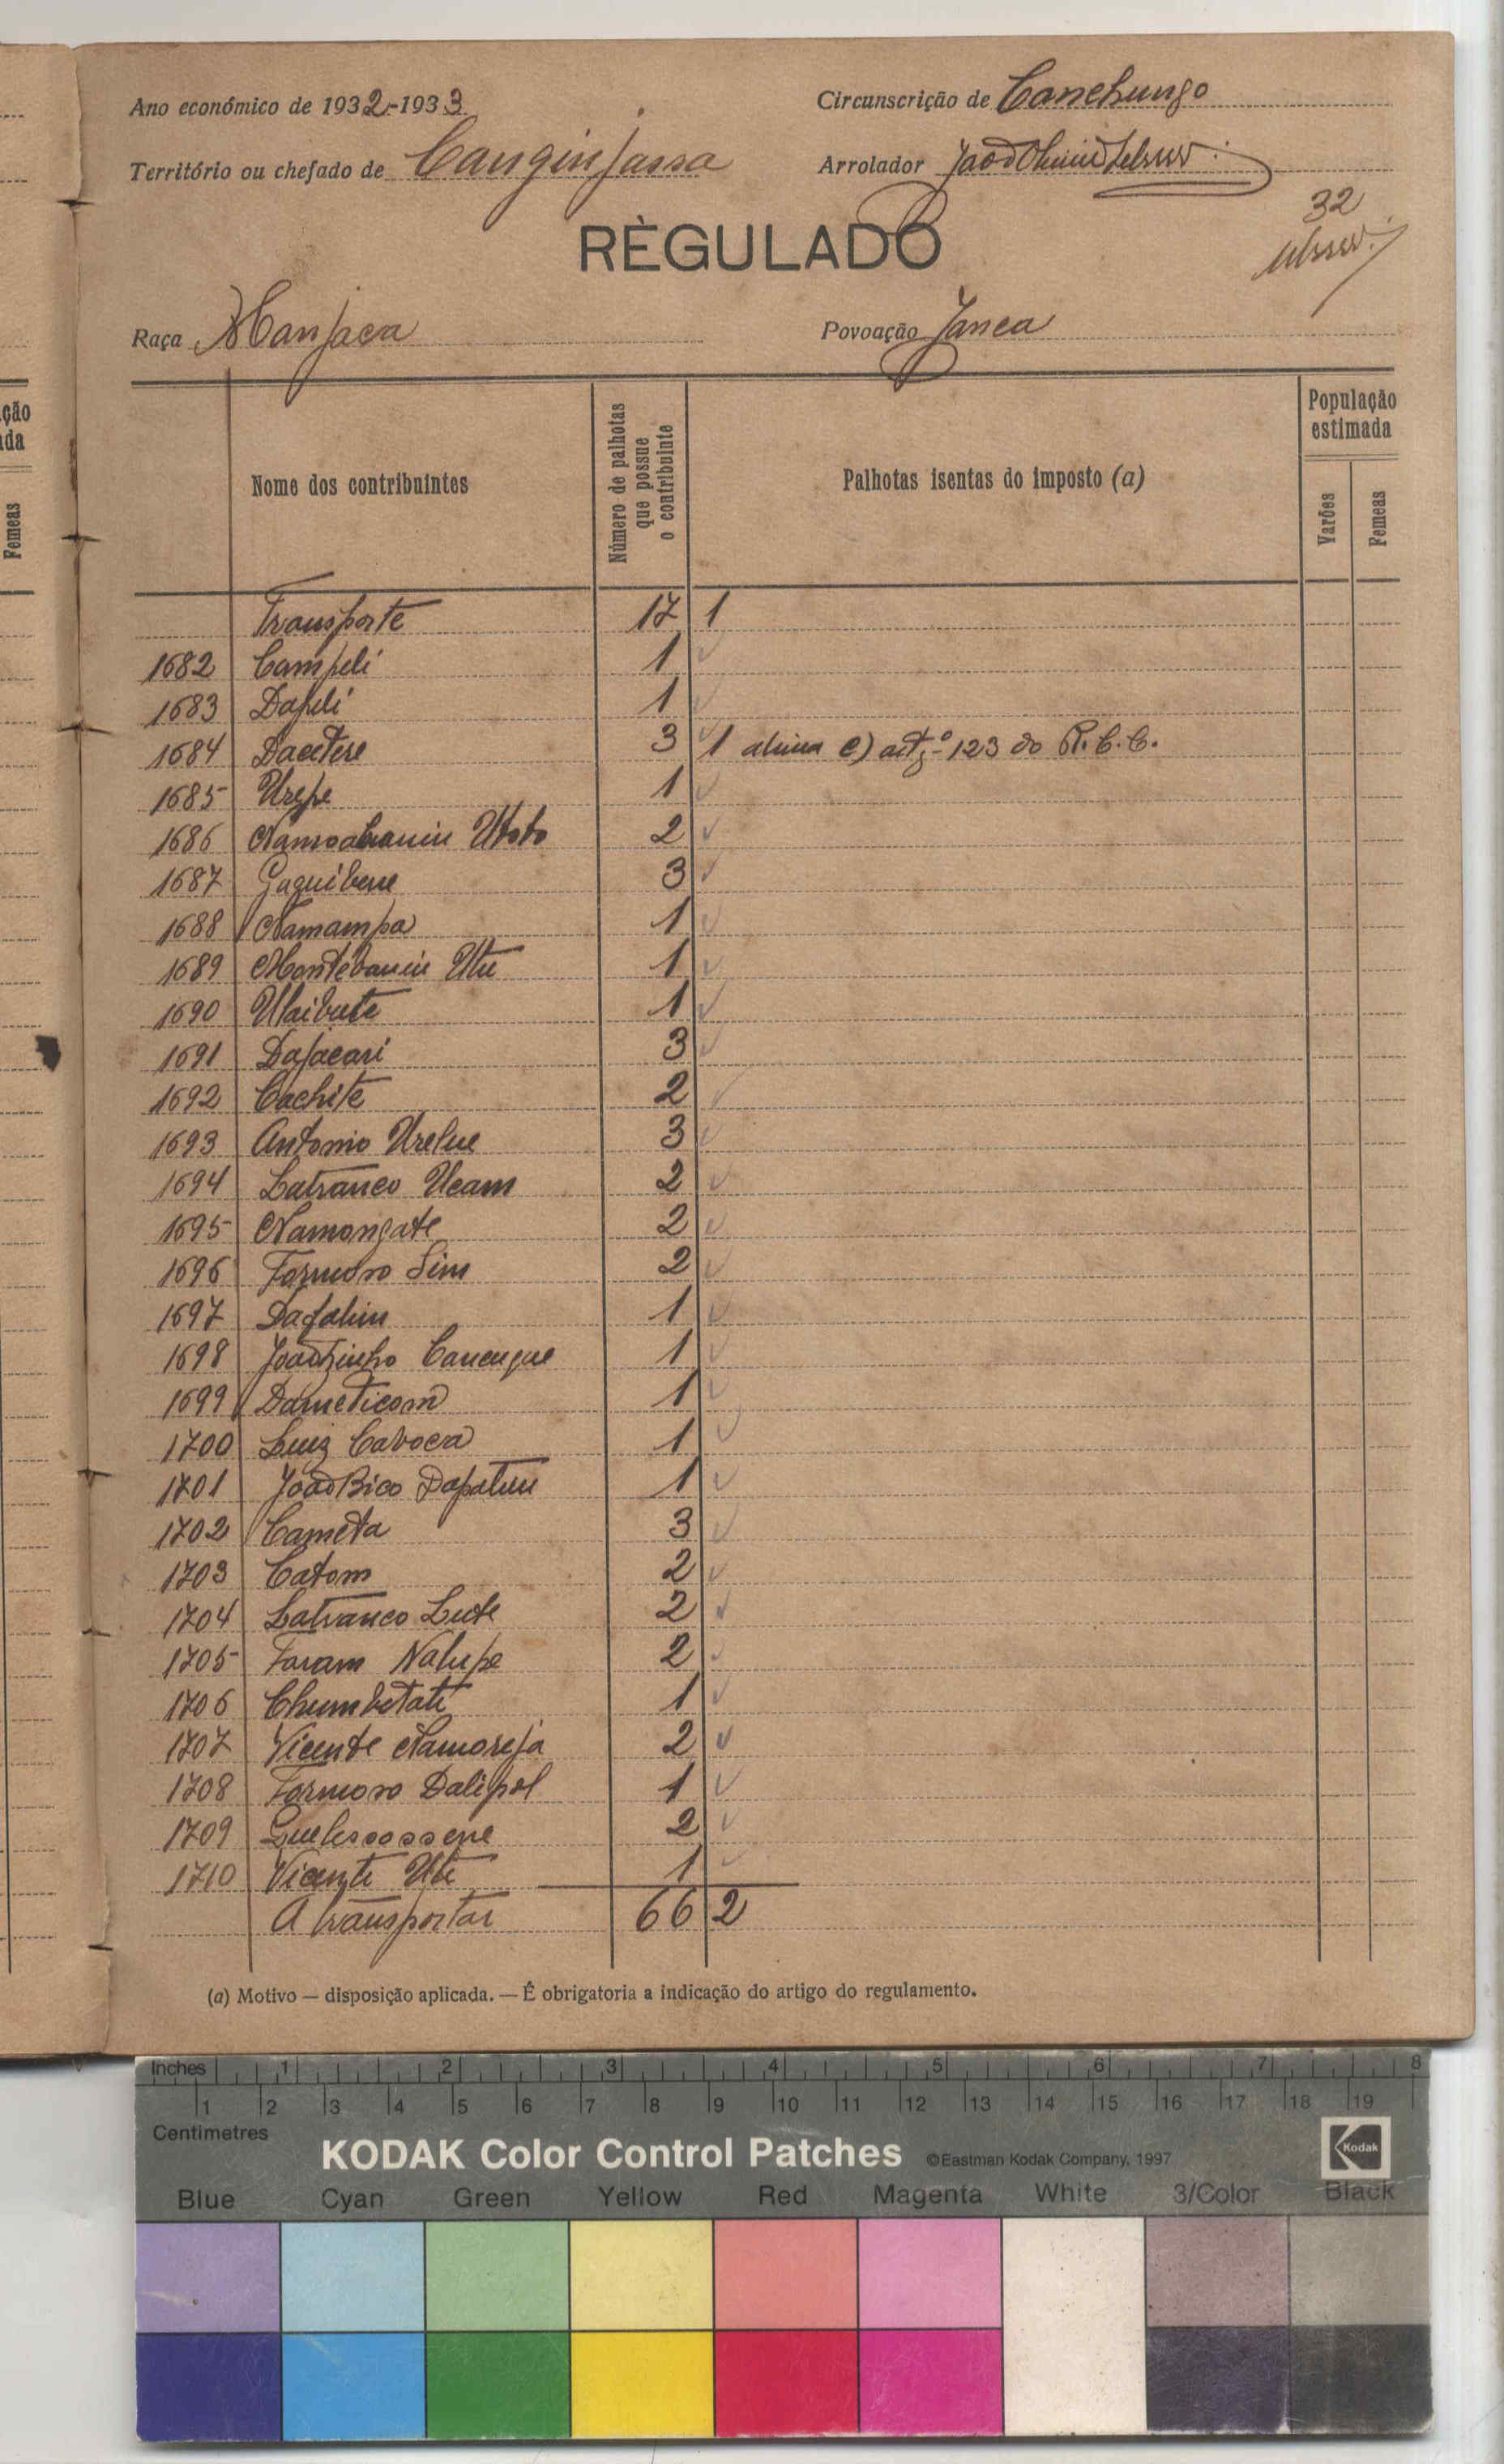 Ano económico de 1932-1933
Circunscrição de Canchungo
Território ou chefado de Canginjassa
Arrolador
32
RÈGULADO
Raça Manjaca
Povoação Janca
ção
ada
Femeas
Nome dos contribuintes
Número de palhotas que possue o contribuinte
Palhotas isentas do imposto (a)
População estimada
Varões
Femeas
Transporte 17 1
1682 Campili 1
1683 Dapili 1
1684 Dacetere 3 1 alinea c) artgº 123 do R. C. C.
1685 Urepe 1
1686 Utobo 2
1687 Gaquibene 3
1688 Namampa 1
1689 1
1690 Ulaibute 1
1691 Dajacari 3
1692 Cachite 2
1693 Antonio 3
1694 Batranco Ucam 2
1695 Namongate 2
1696 Formoso Sim 2
1697 Dafalim 1
1698 Joaõzinho Canengue 1
1699 Dameticom 1
1700 Luiz Caboca 1
1701 João Bico 1
1702 Cameta 3
1703 Catom 2
1704 Batranco Lute 2
1705 Faram Nalupe 2
1706 Chumbetati 1
1707 Vicente Namoreja 2
1708 Formoso Dalipol 1
1709 2
1710 Vicente Ute 1
A transportar 66 2
(a) Motivo — disposição aplicada. — É obrigatoria a indicação do artigo do regulamento.
Inches 1 2 3 4 5 6 7 8
1 2 3 4 5 6 7 8 9 10 11 12 13 14 15 16 17 18 19
Centimetres
KODAK Color Control Patches ©Eastman Kodak Company, 1997 Kodak
Blue Cyan Green Yellow Red Magenta White 3/Color Black